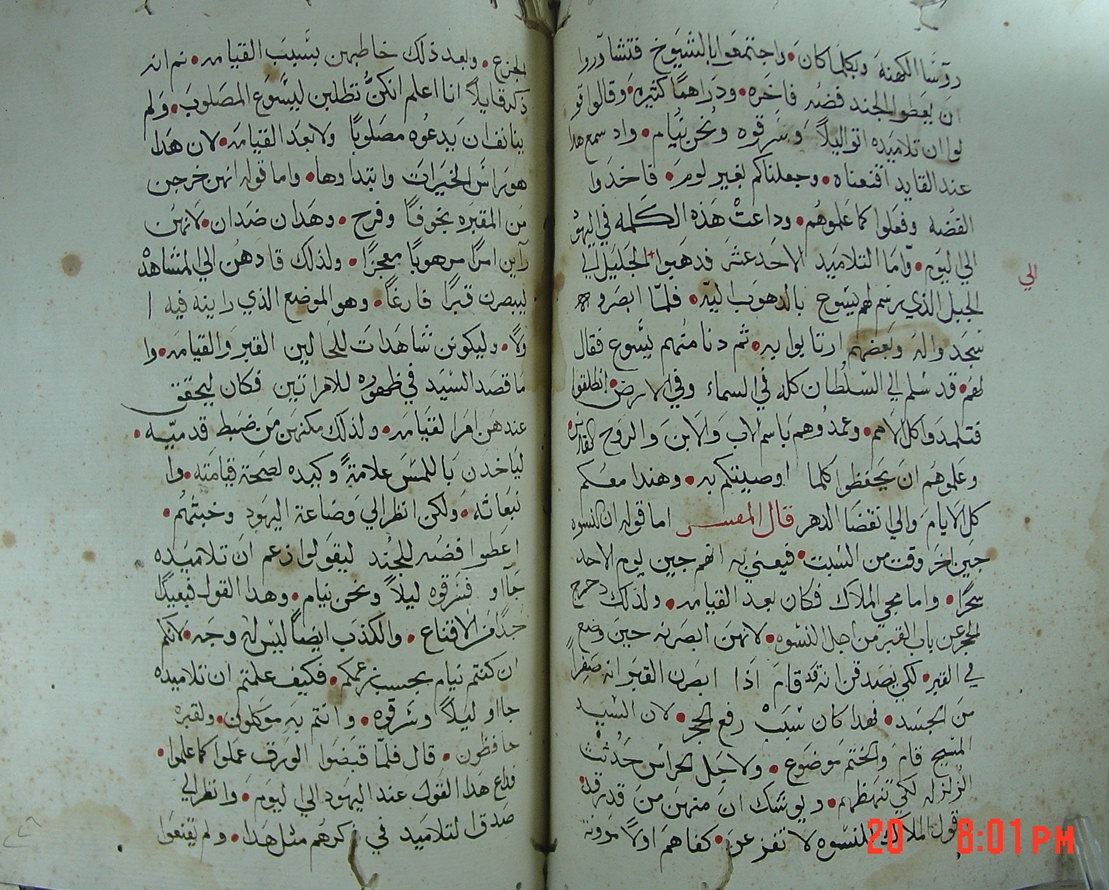 روسا الكهنه وبكلما كان • واجتمعوا بالشيوخ فتشاوروا
ان يعطوا الجند فضه فاخره • ودراهما كثيره • وقالوا قو
لوا ان تلاميذه اتوا ليلاً وسرقوه ونحن نيام • واد سمع هدا
عند القايد اقنعناه • وجعلناكم بغير لوم • فاخدوا
الفضه وفعلوا كما علموهم • وداعت هذه الكلمه في اليهود
الي اليوم • واما التلاميد الاحد عشر فدهبوا الجليل الي
الي
الجبل الذي رسم لهم يشوع بالدهوب اليه • فلما ابصروه
سجدوا له وبعضهم ارتابوا به • ثم دنا منهم يشوع فقال
لهم • قد سلم الي السلطان كله في السماء وفي الارض • انطلقوا
فتلمدوا كل الامم • وعمدوهم باسم الاب والابن والروح القدس
وعلموهم ان يحفظوا كلما اوصيتكم به • وهندا معكم
كل الايام والي انقضا الدهر قال المفسر اما قوله ان النسوه
جين اخر وقت من السبت • فيعني به انهم جين يوم الاحد
سحرًا • واما مجي الملاك فكان بعد القيامه • ولذلك دحرج
الحجر عن باب القبر من اجل النسوه • لانهن ابصرنه حين وضع
في القبر • لكي يصدقن انه قد قام اذا ابصرن القبر انه صفراً
من الجسد • فهدا كان سبب رفع الحجر • لان السيد
المسيح قام والختم موضوع • ولاجل الحراس حدثت
الزلزله لكي تنهظهم • ويوشك ان منهن من قد
قول الملاك للنسوه لا تفزعن • كفاهم اولاً
الجزع • وبعد ذلك خاطبهن بسبب القيامه • ثم انه
ذكر قايلاً انا اعلم انكن تطلبن ليسوع المصلوب • ولم
يانف ان يدعوه مصلوبًا ولا بعد القيامه • لان هدا
هو راس الخيرات وابتداوها • واما قوله انهن خرجن
من المقبره بخوف وفرح • وهدان ضدان • لانهن
راين امرًا مرهوبًا معجزًا • ولذلك قادهن الي المشاهد
ليبصرن قبرًا فارغًا • وهو الموضع الذي راينه فيه ا
ولاً • وليكونن شاهدات للحالين القبر والقيامه • وا
ما قصد السيد في ظهوره للامراتين فكان ليحقق
عندهن امر القيامه • ولذلك مكنهن من ضبط قدميه •
لياخدن باللمس علامةً وكيده لصحة قيامته • وا
نبعاثه • ولكن انظر الي وضاعة اليهود وخبثهم •
اعطوا فضه للجند ليقولوا زعم ان تلاميده
جاًاو فسرقوه ليلاً ونحن نيام • وهدا القول فبعيدًا
جدًا من الاقناع • والكدب ايضًا ليس له وجه • لانكم
ان كنتم نيام بحسب زعمكم • فكيف علمتم ان تلاميده
جااو ليلاً وسرقوه • وانتم به موكلون • ولقبره
حافظون • قال فلما قبضوا الورق عملوا كما علموا •
فداع هدا القول عند اليهود الي اليوم • وانظر الي
صدق التلاميد في دكرهم مثل هدا • ولم يقنعوا
20 8:01 PM